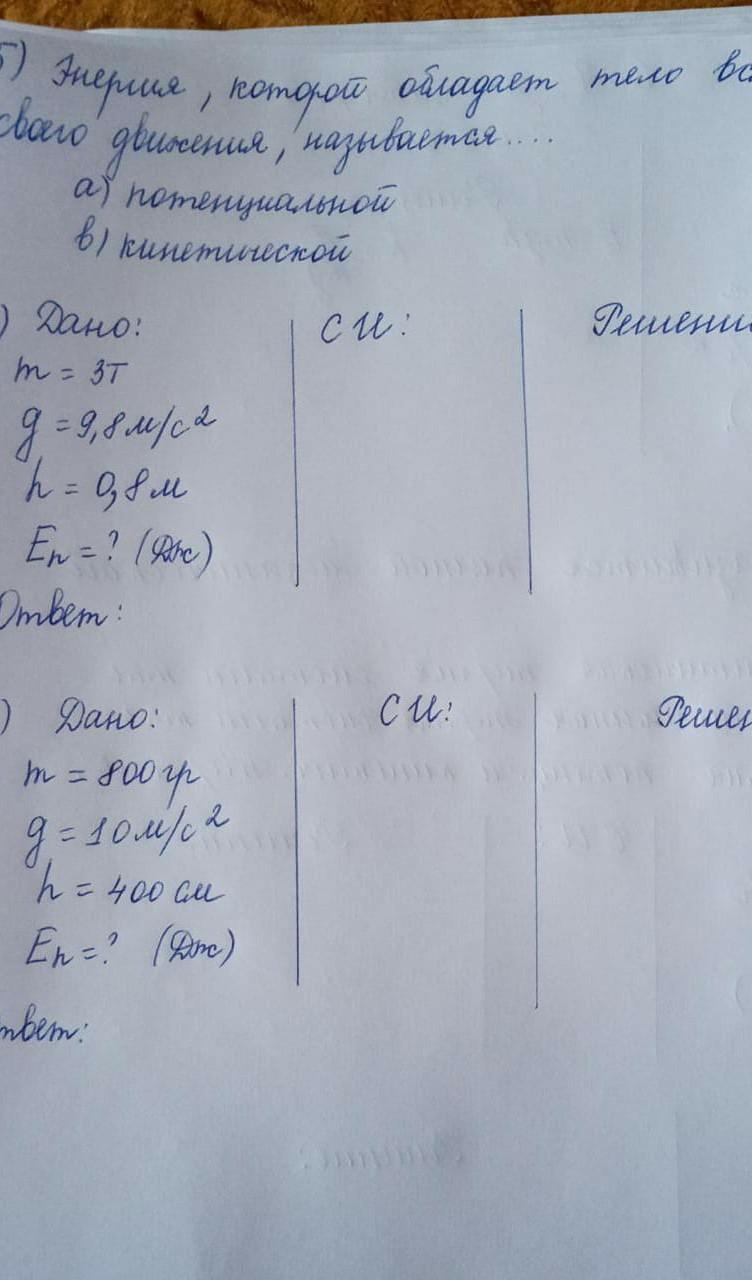 5) Энергия, которой обладает тело вс
своего движения, называется....
а) потенциальной
в) кинетической
) Дано:
СИ:
Решени
m = 3т
g = 9,8 м/с²
h = 0,8 м
Eп = ? (Дж)
Ответ:
) Дано:
СИ:
Решен
m = 800 гр
g = 10 м/с²
h = 400 см
Eп = ? (Дж)
твет: